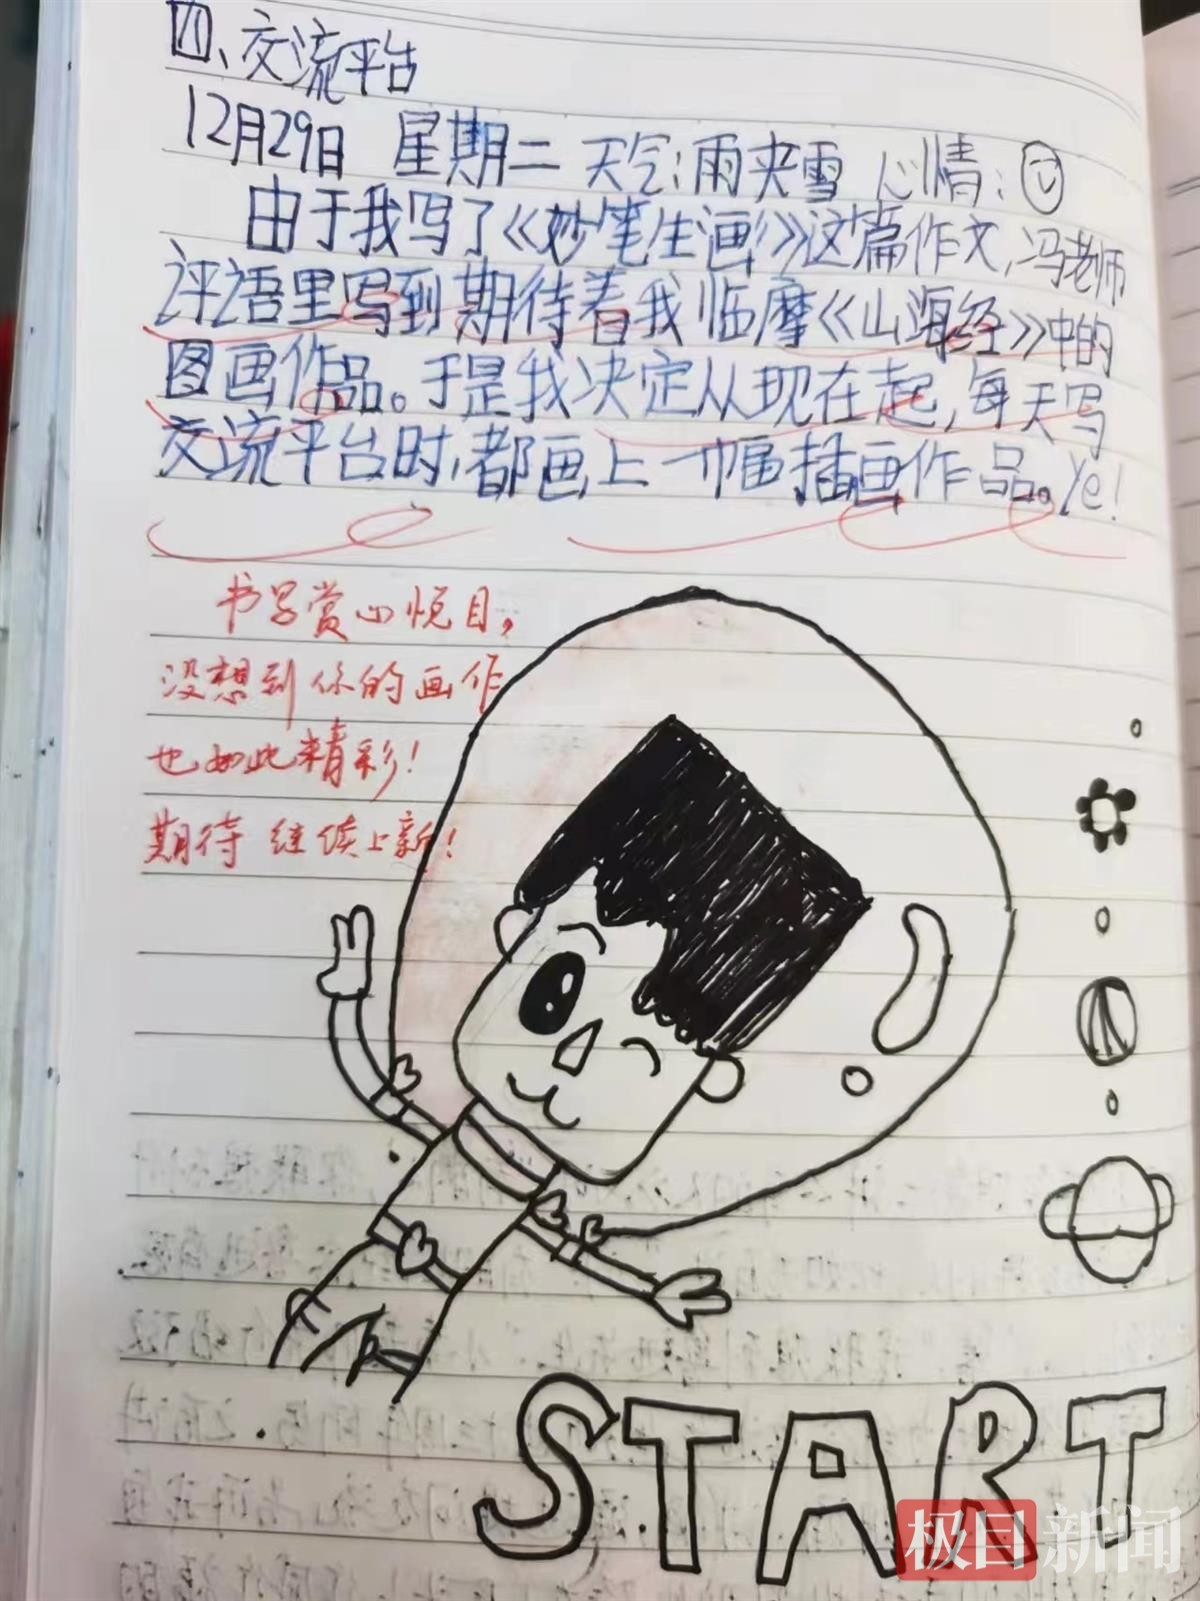 四、交流平台
12月29日 星期二 天气:雨夹雪 心情:
由于我写了《妙笔生画》这篇作文,冯老师
评语里写到期待着我临摩《山海经》中的
图画作品。于是我决定从现在起,每天写
交流平台时,都画上一幅插画作品。Ye!
书写赏心悦目,
没想到你的画作
也如此精彩!
期待继续上新!
START
极目新闻